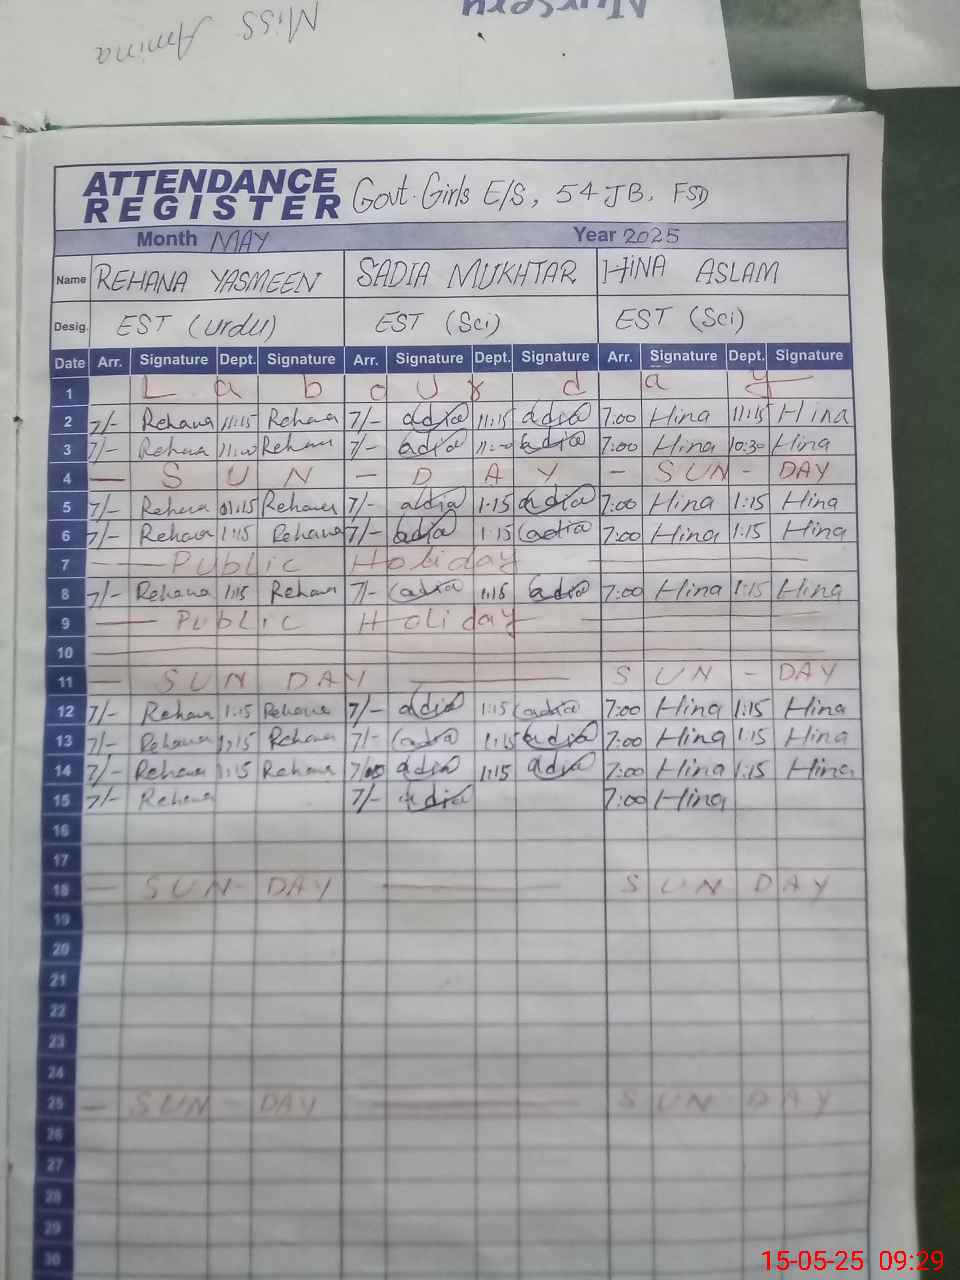 Nursery
Miss Amina
ATTENDANCE REGISTER Govt. Girls E/S, 54 JB, FSD
Month MAY Year 2025
Name REHANA YASMEEN SADIA MUKHTAR HINA ASLAM
Desig. EST (urdu) EST (Sci) EST (Sci)
Date Arr. Signature Dept. Signature Arr. Signature Dept. Signature Arr. Signature Dept. Signature
1 Labour day
2 7/- Rehana 11:15 Rehana 7/- adia 11:15 adia 7:00 Hina 11:15 Hina
3 7/- Rehana 11:00 Rehana 7/- adia 11:00 adia 7:00 Hina 10:30 Hina
4 — SUN — DAY — SUN - DAY
5 7/- Rehana 01:15 Rehana 7/- adia 1:15 adia 7:00 Hina 1:15 Hina
6 7/- Rehana 1:15 Rehana 7/- adia 1:15 adia 7:00 Hina 1:15 Hina
7 — Public Holiday —
8 7/- Rehana 1:15 Rehana 7/- adia 1:15 adia 7:00 Hina 1:15 Hina
9 — Public Holiday —
10
11 — SUN DAY — SUN - DAY
12 7/- Rehana 1:15 Rehana 7/- adia 1:15 adia 7:00 Hina 1:15 Hina
13 7/- Rehana 1:15 Rehana 7/- adia 1:15 adia 7:00 Hina 1:15 Hina
14 7/- Rehana 1:15 Rehana 7/00 adia 1:15 adia 7:00 Hina 1:15 Hina
15 7/- Rehana 7/- adia 7:00 Hina
16
17
18 — SUN - DAY — SUN DAY
19
20
21
22
23
24
25 — SUN - DAY — SUN DAY
26
27
28
29
30
15-05-25 09:29